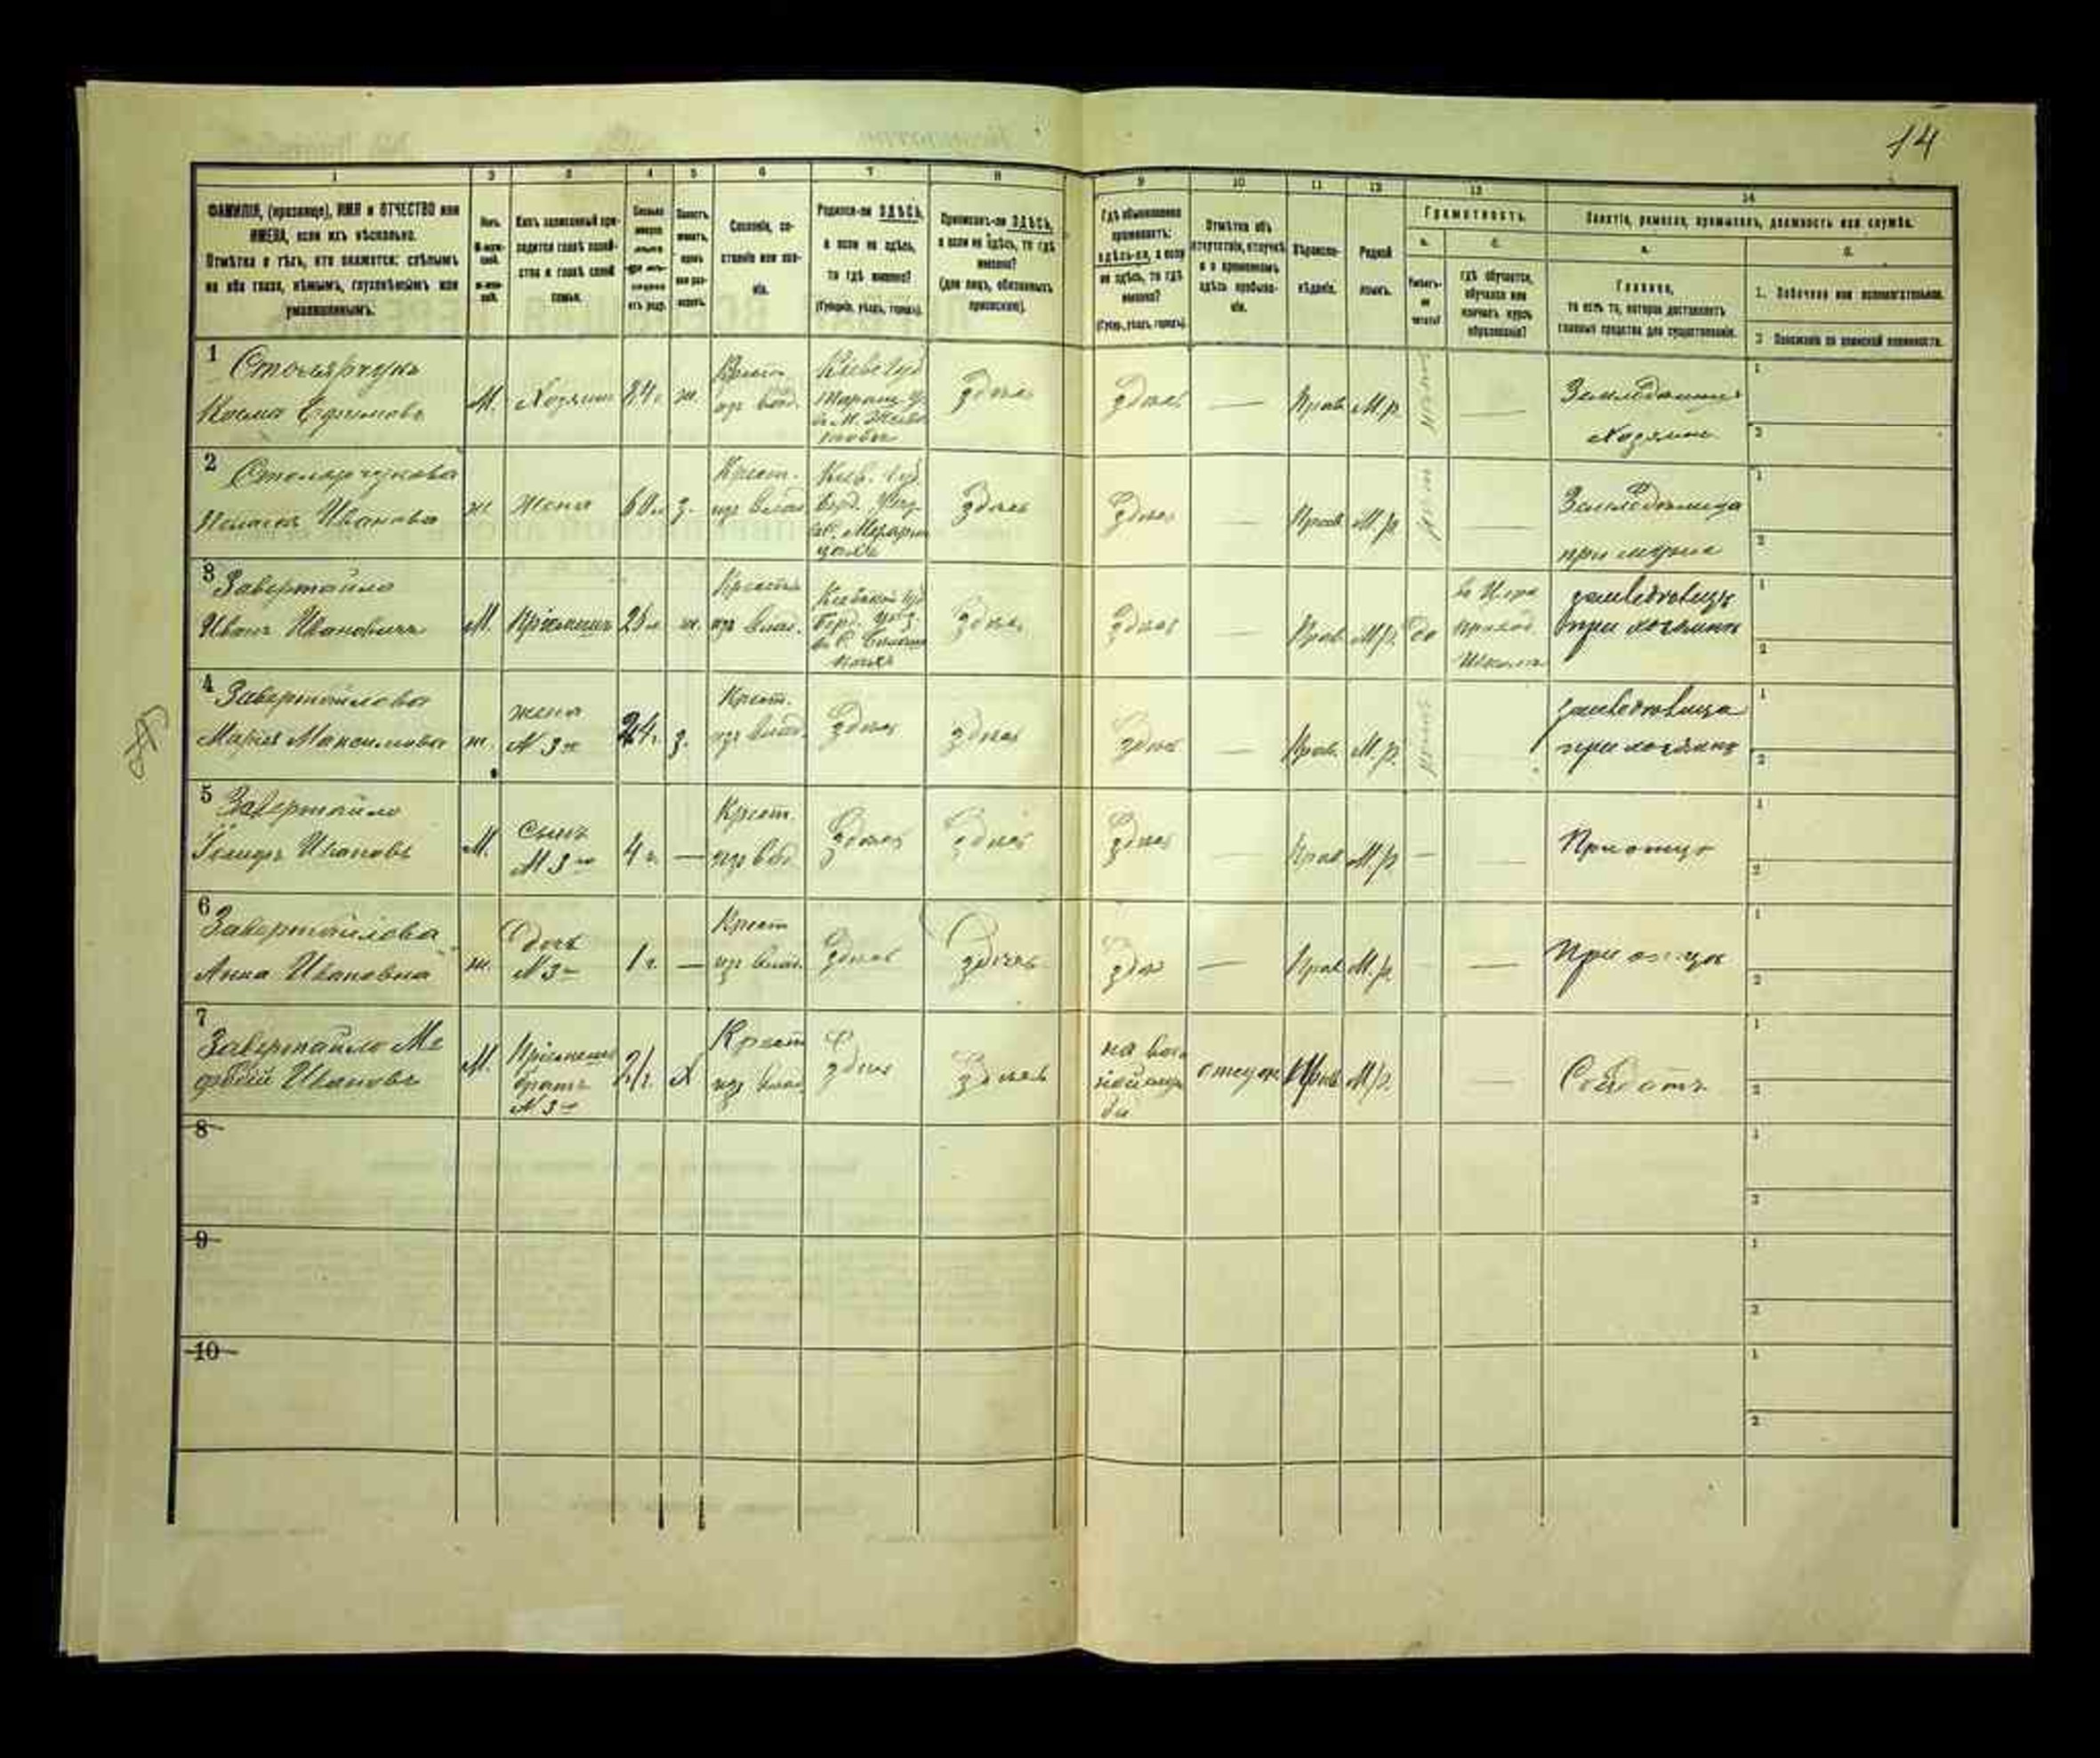 14
1 2 3 4 5 6 7 8 9 10 11 12 13 14
ФАМИЛІЯ, (прозвище), ИМЯ и ОТЧЕСТВО или
ИМЕНА, если ихъ нѣсколько.
Отмѣтка о тѣхъ, кто окажется: слѣпымъ
на оба глаза, нѣмымъ, глухонѣмымъ или
умалишеннымъ.
Полъ.
М-муж-
ской.
Ж-жен-
скій.
Какъ записанный при-
ходится главѣ хозяй-
ства и главѣ своей
семьи.
Сословіе, со-
стояніе или зва-
ніе.
Родился-ли ЗДѢСЬ,
а если не здѣсь,
то гдѣ именно?
(Губернія, уѣздъ, городъ).
Приписанъ-ли ЗДѢСЬ,
а если не здѣсь, то гдѣ
именно?
(для лицъ, обязанныхъ
припискою).
Гдѣ обыкновенно
проживаетъ:
здѣсь-ли, а если
не здѣсь, то гдѣ
именно?
(Губер., уѣздъ, городъ).
Отмѣтка объ
отсутствіи, отлучкѣ
и о временномъ
здѣсь пребыва-
ніи.
Вѣроиспо-
вѣданіе.
Родной
языкъ.
Грамотность.
а. б.
Умѣетъ-
ли
читать?
гдѣ обучается,
обучался или
кончилъ курсъ
образованія?
Занятіе, ремесло, промыселъ, должность или служба.
а. б.
Главное,
то есть то, которое доставляетъ
главныя средства для существованія.
1. Побочное или вспомогательное.
2 Положеніе по воинской повинности.
1 Столярчукъ
Косма Ефимовъ
М. Хозяинъ ж. Крест. изъ влад.
Кіев. Губ.
Таращ. у.
здѣсь здѣсь — Прав М.р. —
Земледѣлецъ
Хозяинъ
1
2
2 Столярчукова
Ивановна
ж жена 60 л з. Крест. изъ влад
Кіев. Губ.
Берд. Уѣз.
здѣсь здѣсь — Прав М.р —
Земледѣлица
при мужѣ
1
2
3 Завертайло
Иванъ Ивановичъ
М. Пріемышъ ж. Крестья изъ влад.
Кіевской Губ
Берд. уѣз.
здѣсь здѣсь — Прав М.р. да
въ Церк
приход.
Школѣ
земледѣлецъ
при хозяинѣ
1
2
4 Завертайлова
Марія Максимова
ж. жена
N 3го 24 г. з. Крест. изъ влад.
здѣсь здѣсь здѣсь — Прав. М.р. —
земледѣлица
при хозяинѣ
1
2
5 Завертайло
Іосифъ Ивановъ
М. сынъ
N 3го 4 г. — Крест. изъ влад.
здѣсь здѣсь здѣсь — Прав М.р — —
При отцѣ
1
2
6 Завертайлова
Анна Ивановна
ж. дочь
N 3го 1 г. — Крест изъ влад.
здѣсь здѣсь здѣсь — Прав М.р. — —
При отцѣ
1
2
7 Завертайло Ме
фодій Ивановъ
М. Пріемышъ
братъ
N 3го 21 г. х Крест изъ влад.
здѣсь здѣсь
на во
отсут Прав М.р. —
Солдатъ
1
2
8
1
2
9
1
2
10
1
2